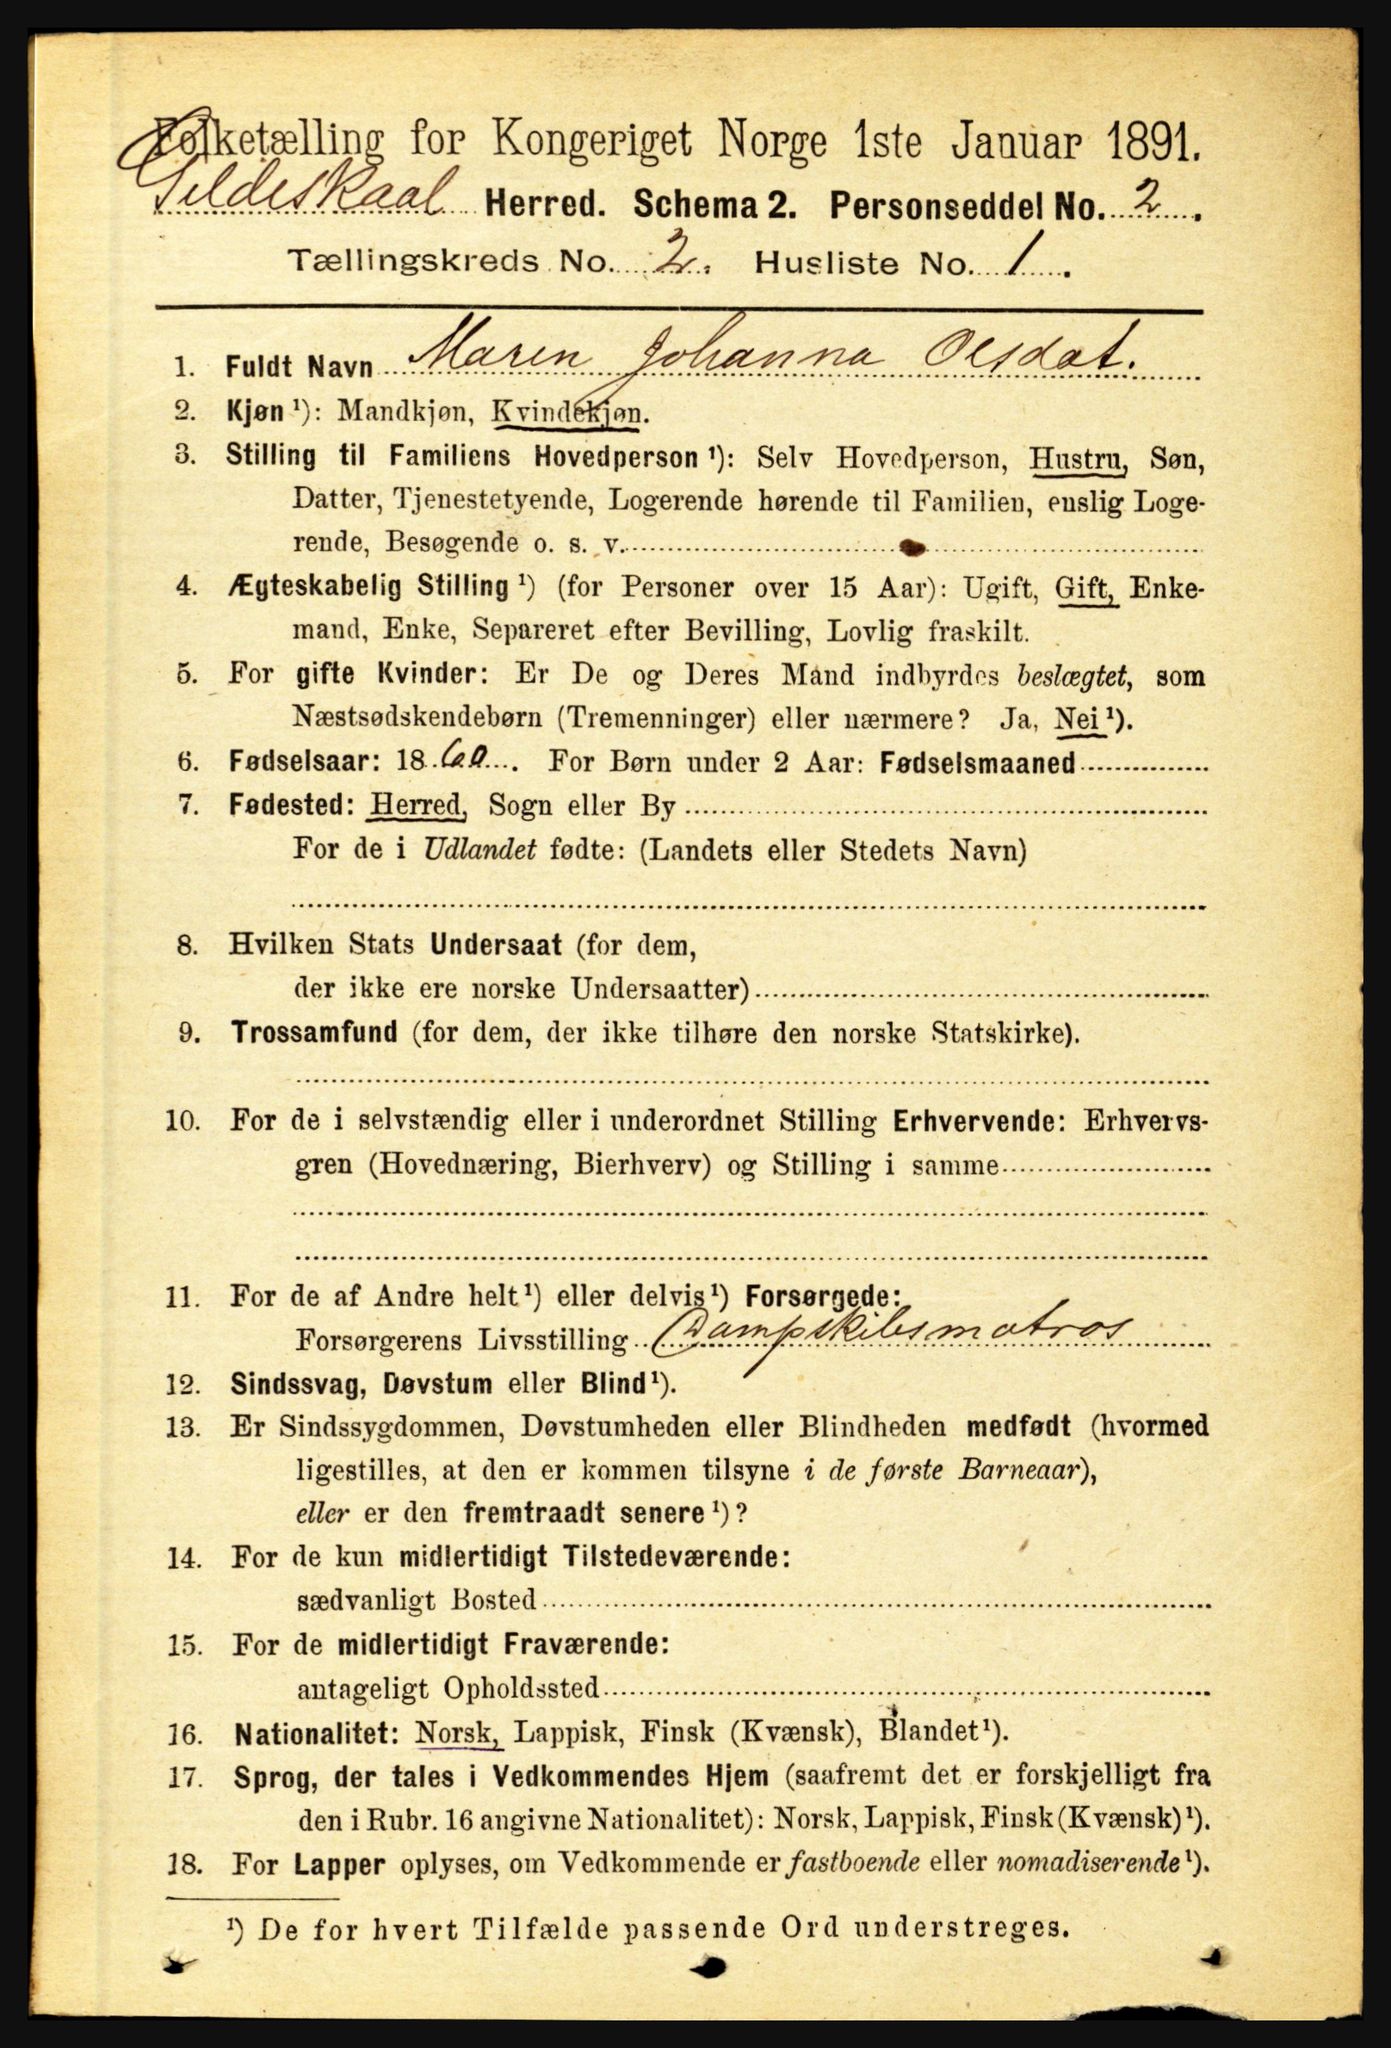 Folketælling for Kongeriget Norge 1ste Januar 1891.
Gildeskaal Herred. Schema 2. Personseddel No. 2.
Tællingskreds No. 2. Husliste No. 1.
1. Fuldt Navn Maren Johanna Olsdat.
2. Kjøn ¹): Mandkjøn, Kvindekjøn.
3. Stilling til Familiens Hovedperson ¹): Selv Hovedperson, Hustru, Søn,
Datter, Tjenestetyende, Logerende hørende til Familien, enslig Loge-
rende, Besøgende o. s. v.
4. Ægteskabelig Stilling ¹) (for Personer over 15 Aar): Ugift, Gift, Enke-
mand, Enke, Separeret efter Bevilling, Lovlig fraskilt.
5. For gifte Kvinder: Er De og Deres Mand indbyrdes beslægtet, som
Næstsødskendebørn (Tremenninger) eller nærmere? Ja, Nei ¹).
6. Fødselsaar: 1860. For Børn under 2 Aar: Fødselsmaaned
7. Fødested: Herred, Sogn eller By
For de i Udlandet fødte: (Landets eller Stedets Navn)
8. Hvilken Stats Undersaat (for dem,
der ikke ere norske Undersaatter)
9. Trossamfund (for dem, der ikke tilhøre den norske Statskirke).
10. For de i selvstændig eller i underordnet Stilling Erhvervende: Erhvervs-
gren (Hovednæring, Bierhverv) og Stilling i samme
11. For de af Andre helt ¹) eller delvis ¹) Forsørgede:
Forsørgerens Livsstilling Dampskibsmatros
12. Sindssvag, Døvstum eller Blind ¹).
13. Er Sindssygdommen, Døvstumheden eller Blindheden medfødt (hvormed
ligestilles, at den er kommen tilsyne i de første Barneaar),
eller er den fremtraadt senere ¹)?
14. For de kun midlertidigt Tilstedeværende:
sædvanligt Bosted
15. For de midlertidigt Fraværende:
antageligt Opholdssted
16. Nationalitet: Norsk, Lappisk, Finsk (Kvænsk), Blandet ¹).
17. Sprog, der tales i Vedkommendes Hjem (saafremt det er forskjelligt fra
den i Rubr. 16 angivne Nationalitet): Norsk, Lappisk, Finsk (Kvænsk) ¹).
18. For Lapper oplyses, om Vedkommende er fastboende eller nomadiserende ¹).
¹) De for hvert Tilfælde passende Ord understreges.